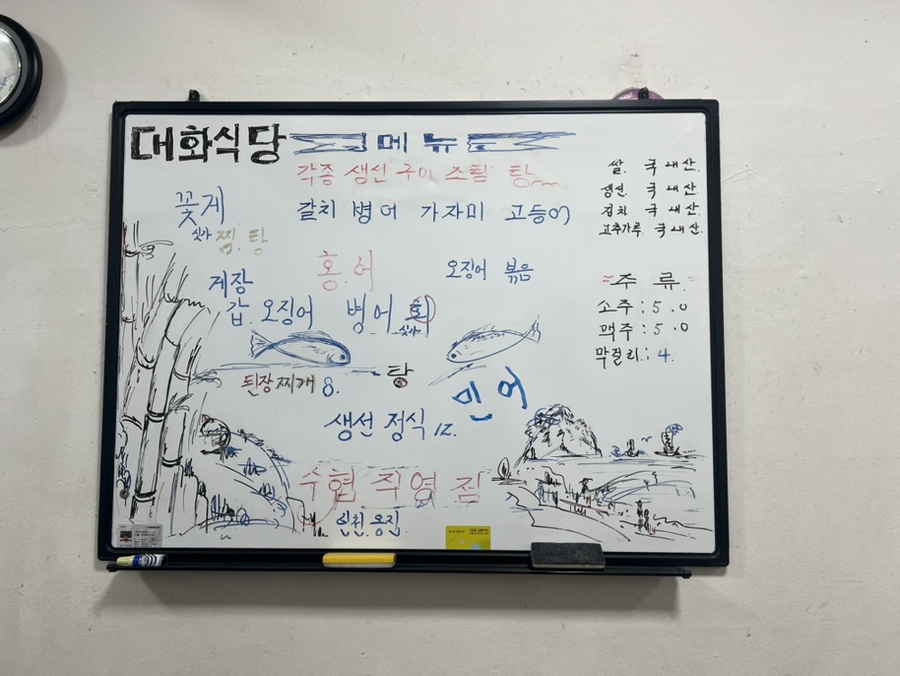 대화식당 메뉴
각종 생선 구이 조림 탕
꽃게
갈치 병어 가자미 고등어
싯가 찜. 탕
홍.어
오징어 볶음
게장
갑.오징어 병어 회
싯가
탕
된장찌개 8.
민어
생선 정식 12.
수협 직영점
인천.옹진
쌀. 국내산.
생선. 국내산.
김치 국내산.
고추가루. 국내산.
주류.
소주:5.0
맥주:5.0
막걸리.: 4.